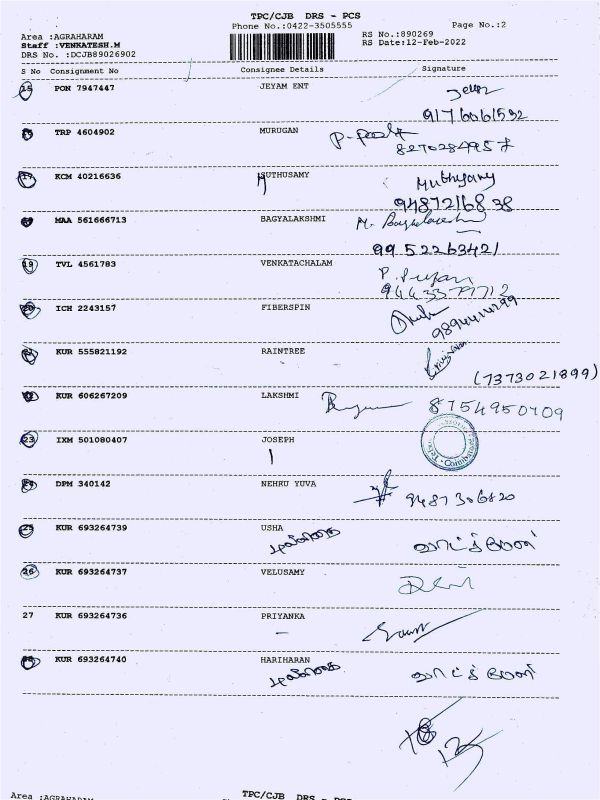 TPC/CJB DRS - PCS
Phone No.:0422-3505555 Page No.:2
Area :AGRAHARAM RS No.:890269
Staff :VENKATESH.M RS Date:12-Feb-2022
DRS No. :DCJB89026902
S No Consignment No Consignee Details Signature
15 PON 7947447 JEYAM ENT
9176061592
16 TRP 4604902 MURUGAN
8270284957
17 KCM 40216636 MUTHUSAMY Muthusamy
9487216838
18 MAA 561666713 BAGYALAKSHMI M. Bagyalakshmi
9952263421
19 TVL 4561783 VENKATACHALAM
9443377712
20 ICH 2243157 FIBERSPIN
9894414299
21 KUR 555821192 RAINTREE
(7373021899)
22 KUR 606267209 LAKSHMI 8754950709
23 IXM 501080407 JOSEPH
24 DPM 340142 NEHRU YUVA 9487306820
25 KUR 693264739 USHA
26 KUR 693264737 VELUSAMY
27 KUR 693264736 PRIYANKA
28 KUR 693264740 HARIHARAN
TPC/CJB DRS - PCS
Area :AGRAHARAM